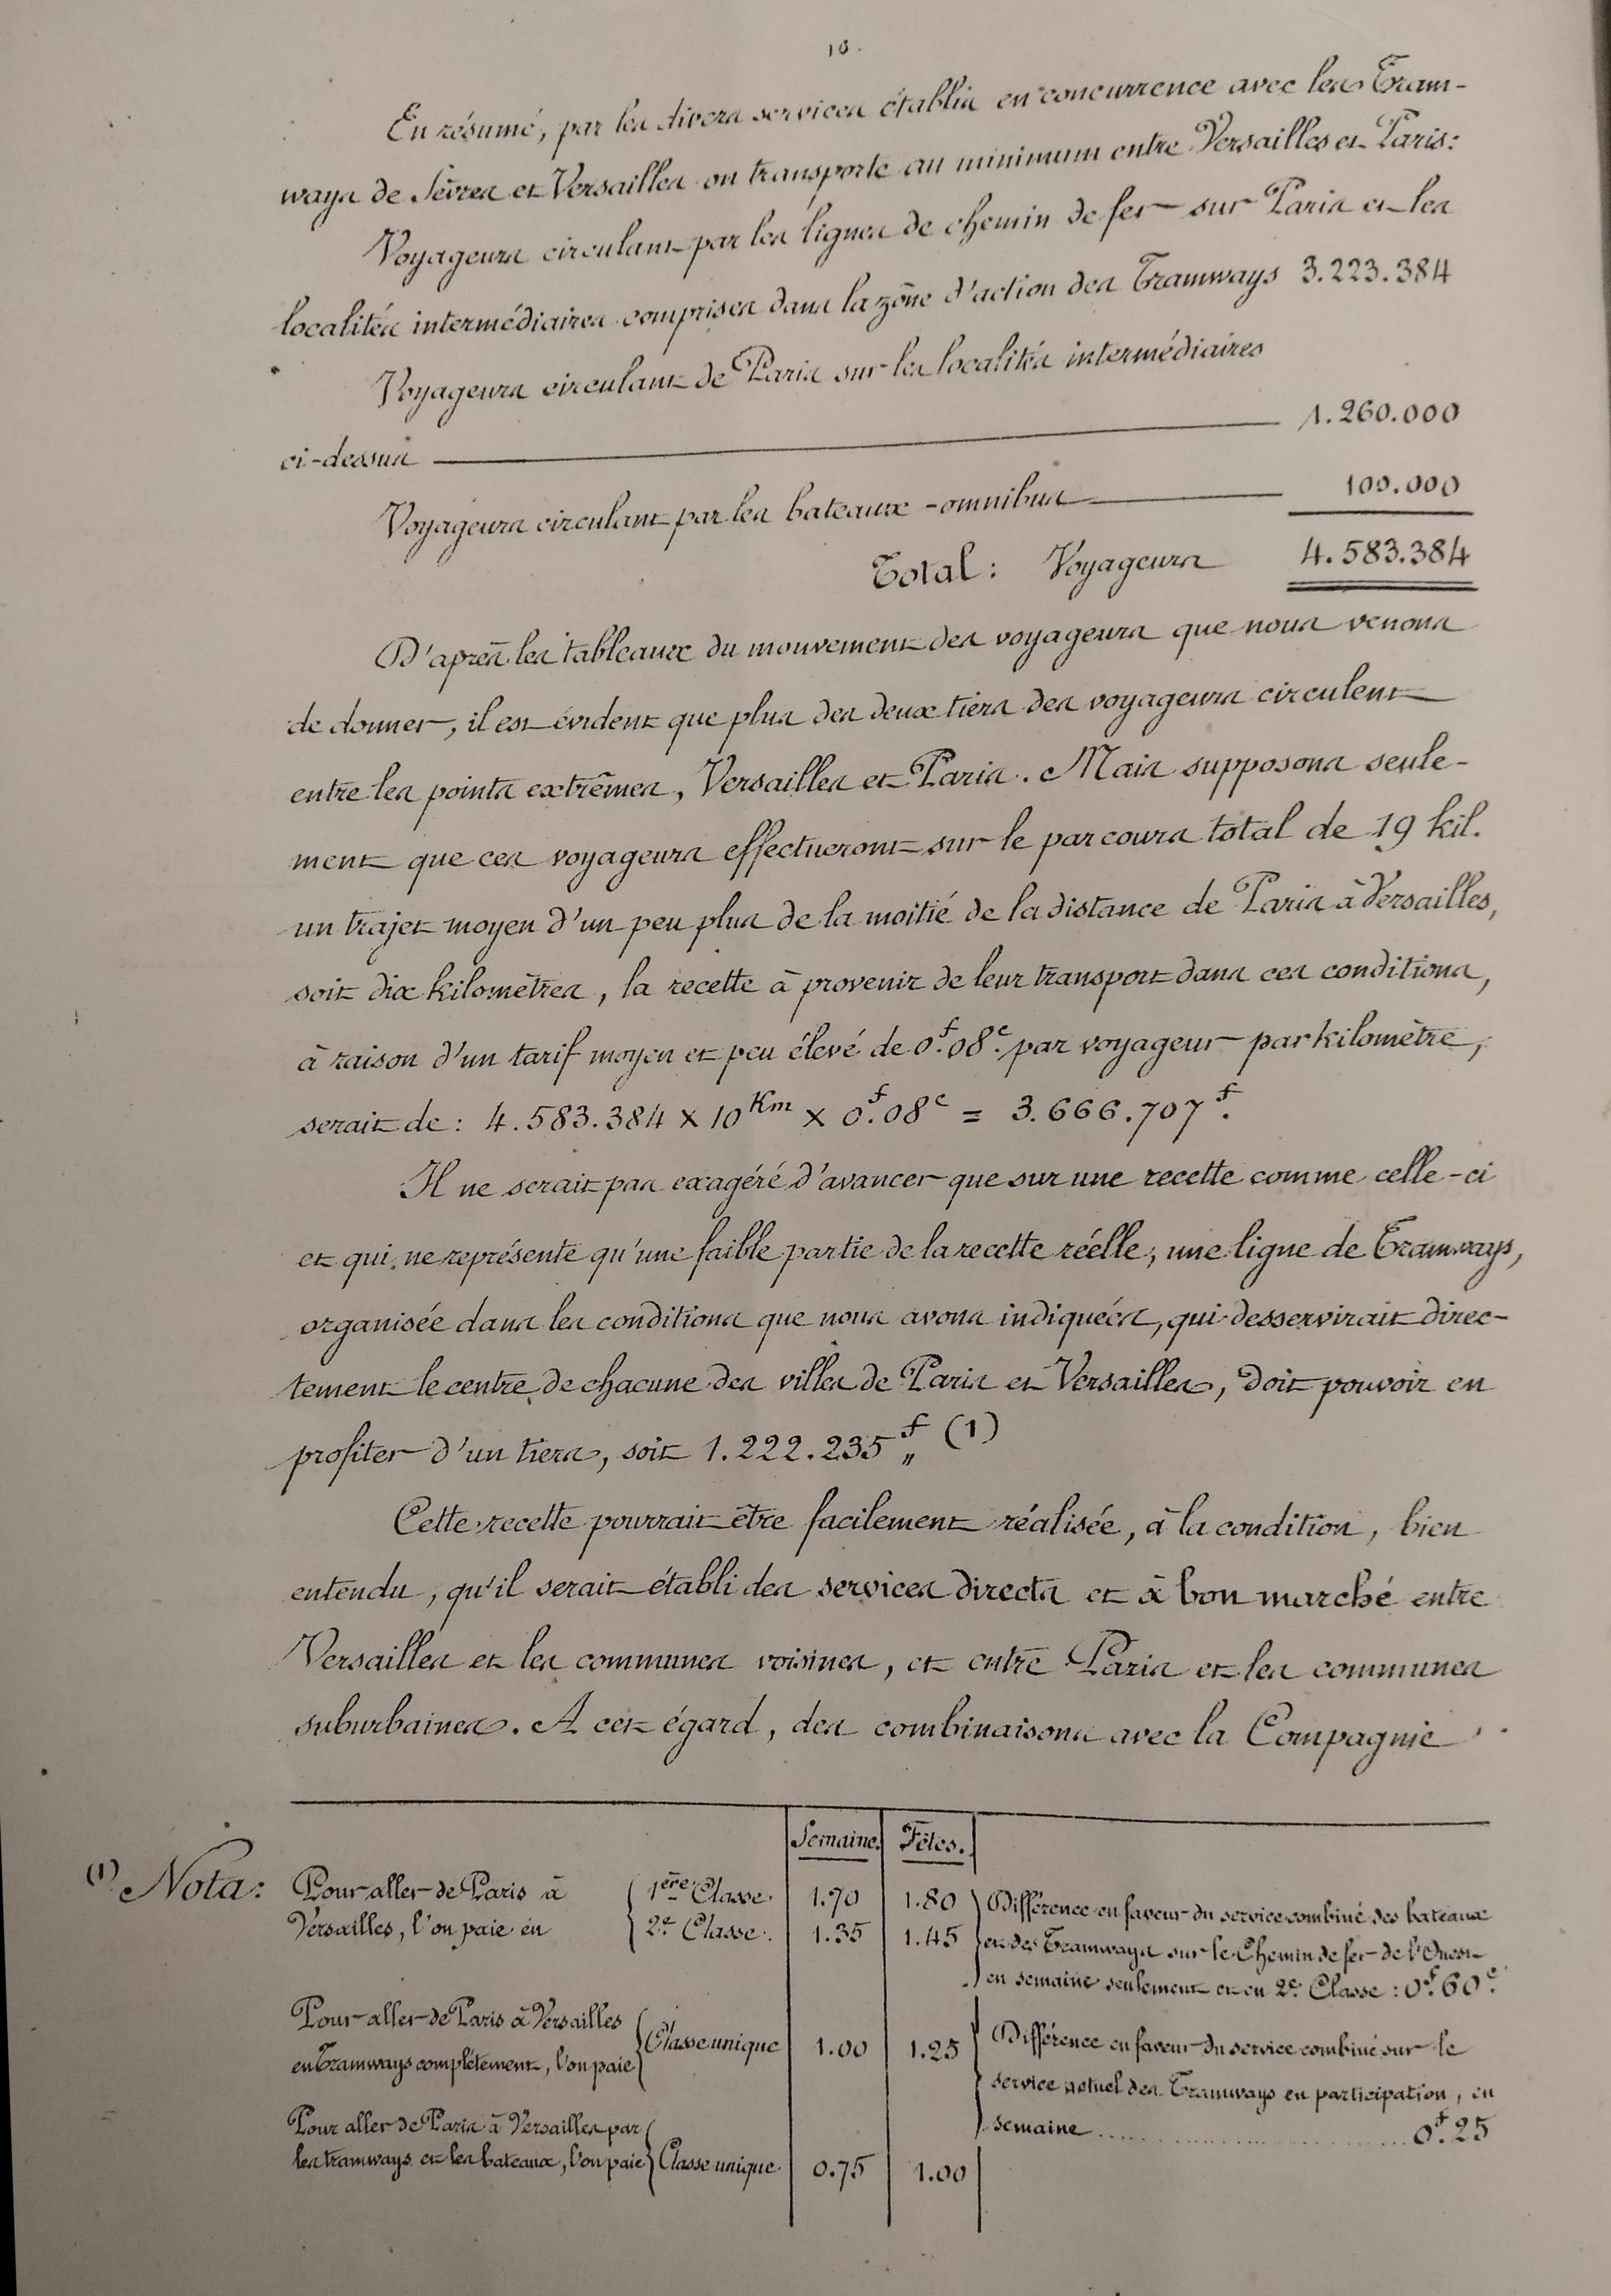 10.
En résumé, par les divers services établis en concurrence avec les Tram-
ways de Sèvres et Versailles on transporte au minimum entre Versailles et Paris:
Voyageurs circulant par les lignes de chemin de fer sur Paris et les
localités intermédiaires comprises dans la zône d'action des Tramways 3.223.384
Voyageurs circulant de Paris sur les localités intermédiaires
ci-dessus 1.260.000
Voyageurs circulant par les bateaux-omnibus 100.000
Total: Voyageurs 4.583.384
D'après les tableaux du mouvement des voyageurs que nous venons
de donner, il est évident que plus des deux tiers des voyageurs circulent
entre les points extrêmes, Versailles et Paris. Mais supposons seule-
ment que ces voyageurs effectueront sur le parcours total de 19 kil.
un trajet moyen d'un peu plus de la moitié de la distance de Paris à Versailles,
soit dix kilomètres, la recette à provenir de leur transport dans ces conditions,
à raison d'un tarif moyen et peu élevé de 0f.08c. par voyageur par kilomètre,
serait de: 4.583.384 x 10 Km x 0f.08c = 3.666.707f.
Il ne serait pas exagéré d'avancer que sur une recette comme celle-ci
et qui ne représente qu'une faible partie de la recette réelle, une ligne de Tramways,
organisée dans les conditions que nous avons indiquées, qui desservirait direc-
tement le centre de chacune des villes de Paris et Versailles, doit pouvoir en
profiter d'un tiers, soit 1.222.235f" (1)
Cette recette pourrait être facilement réalisée, à la condition, bien
entendu, qu'il serait établi des services directs et à bon marché entre
Versailles et les communes voisines, et entre Paris et les communes
suburbaines. A cet égard, des combinaisons avec la Compagnie
Semaine. Fêtes.
(1) Nota: Pour aller de Paris à { 1ère Classe. 1.70 1.80 } Différence en faveur du service combiné des bateaux
Versailles, l'on paie en { 2e. Classe. 1.35 1.45 } et des Tramways sur le Chemin de fer de l'Ouest
en semaine seulement et en 2e. Classe: 0f.60c.
Pour aller de Paris à Versailles
en Tramways complètement, l'on paie { Classe unique 1.00 1.25 { Différence en faveur du service combiné sur le
service actuel des Tramways en participation, en
semaine .......... 0f.25
Pour aller de Paris à Versailles par
les tramways et les bateaux, l'on paie } Classe unique. 0.75 1.00